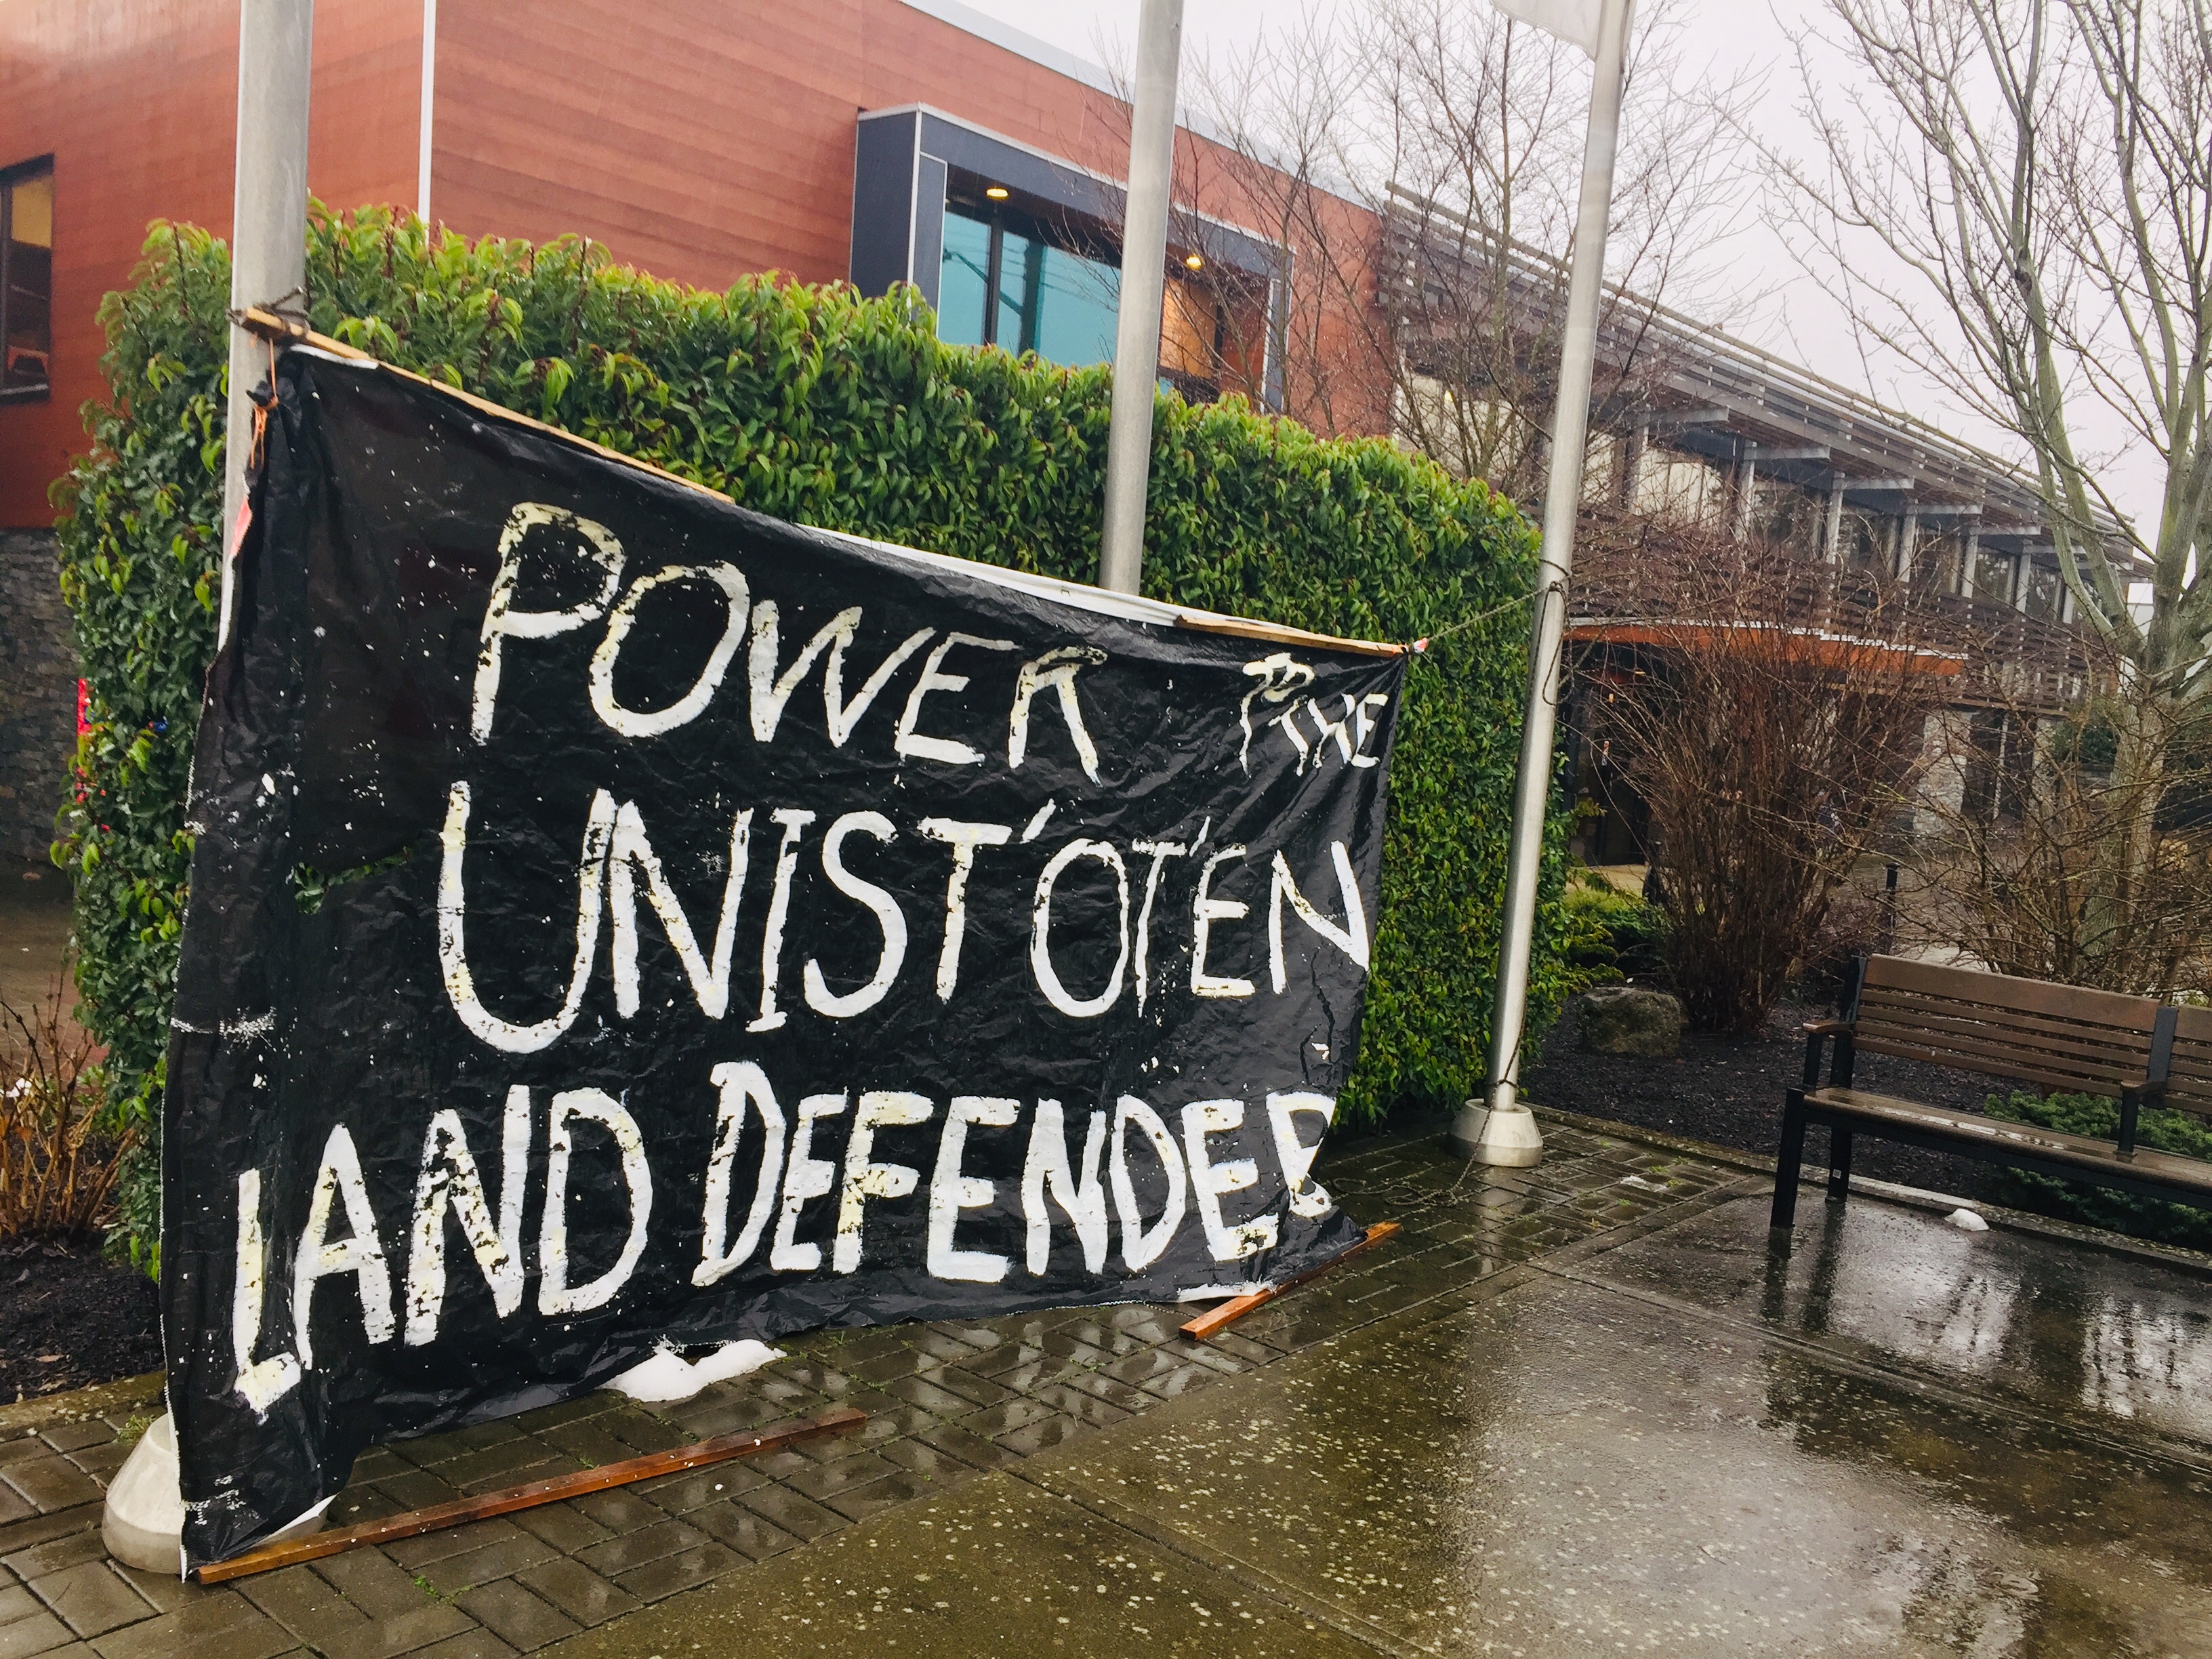 POWER TO THE
UNIST'OT'EN
LAND DEFENDER